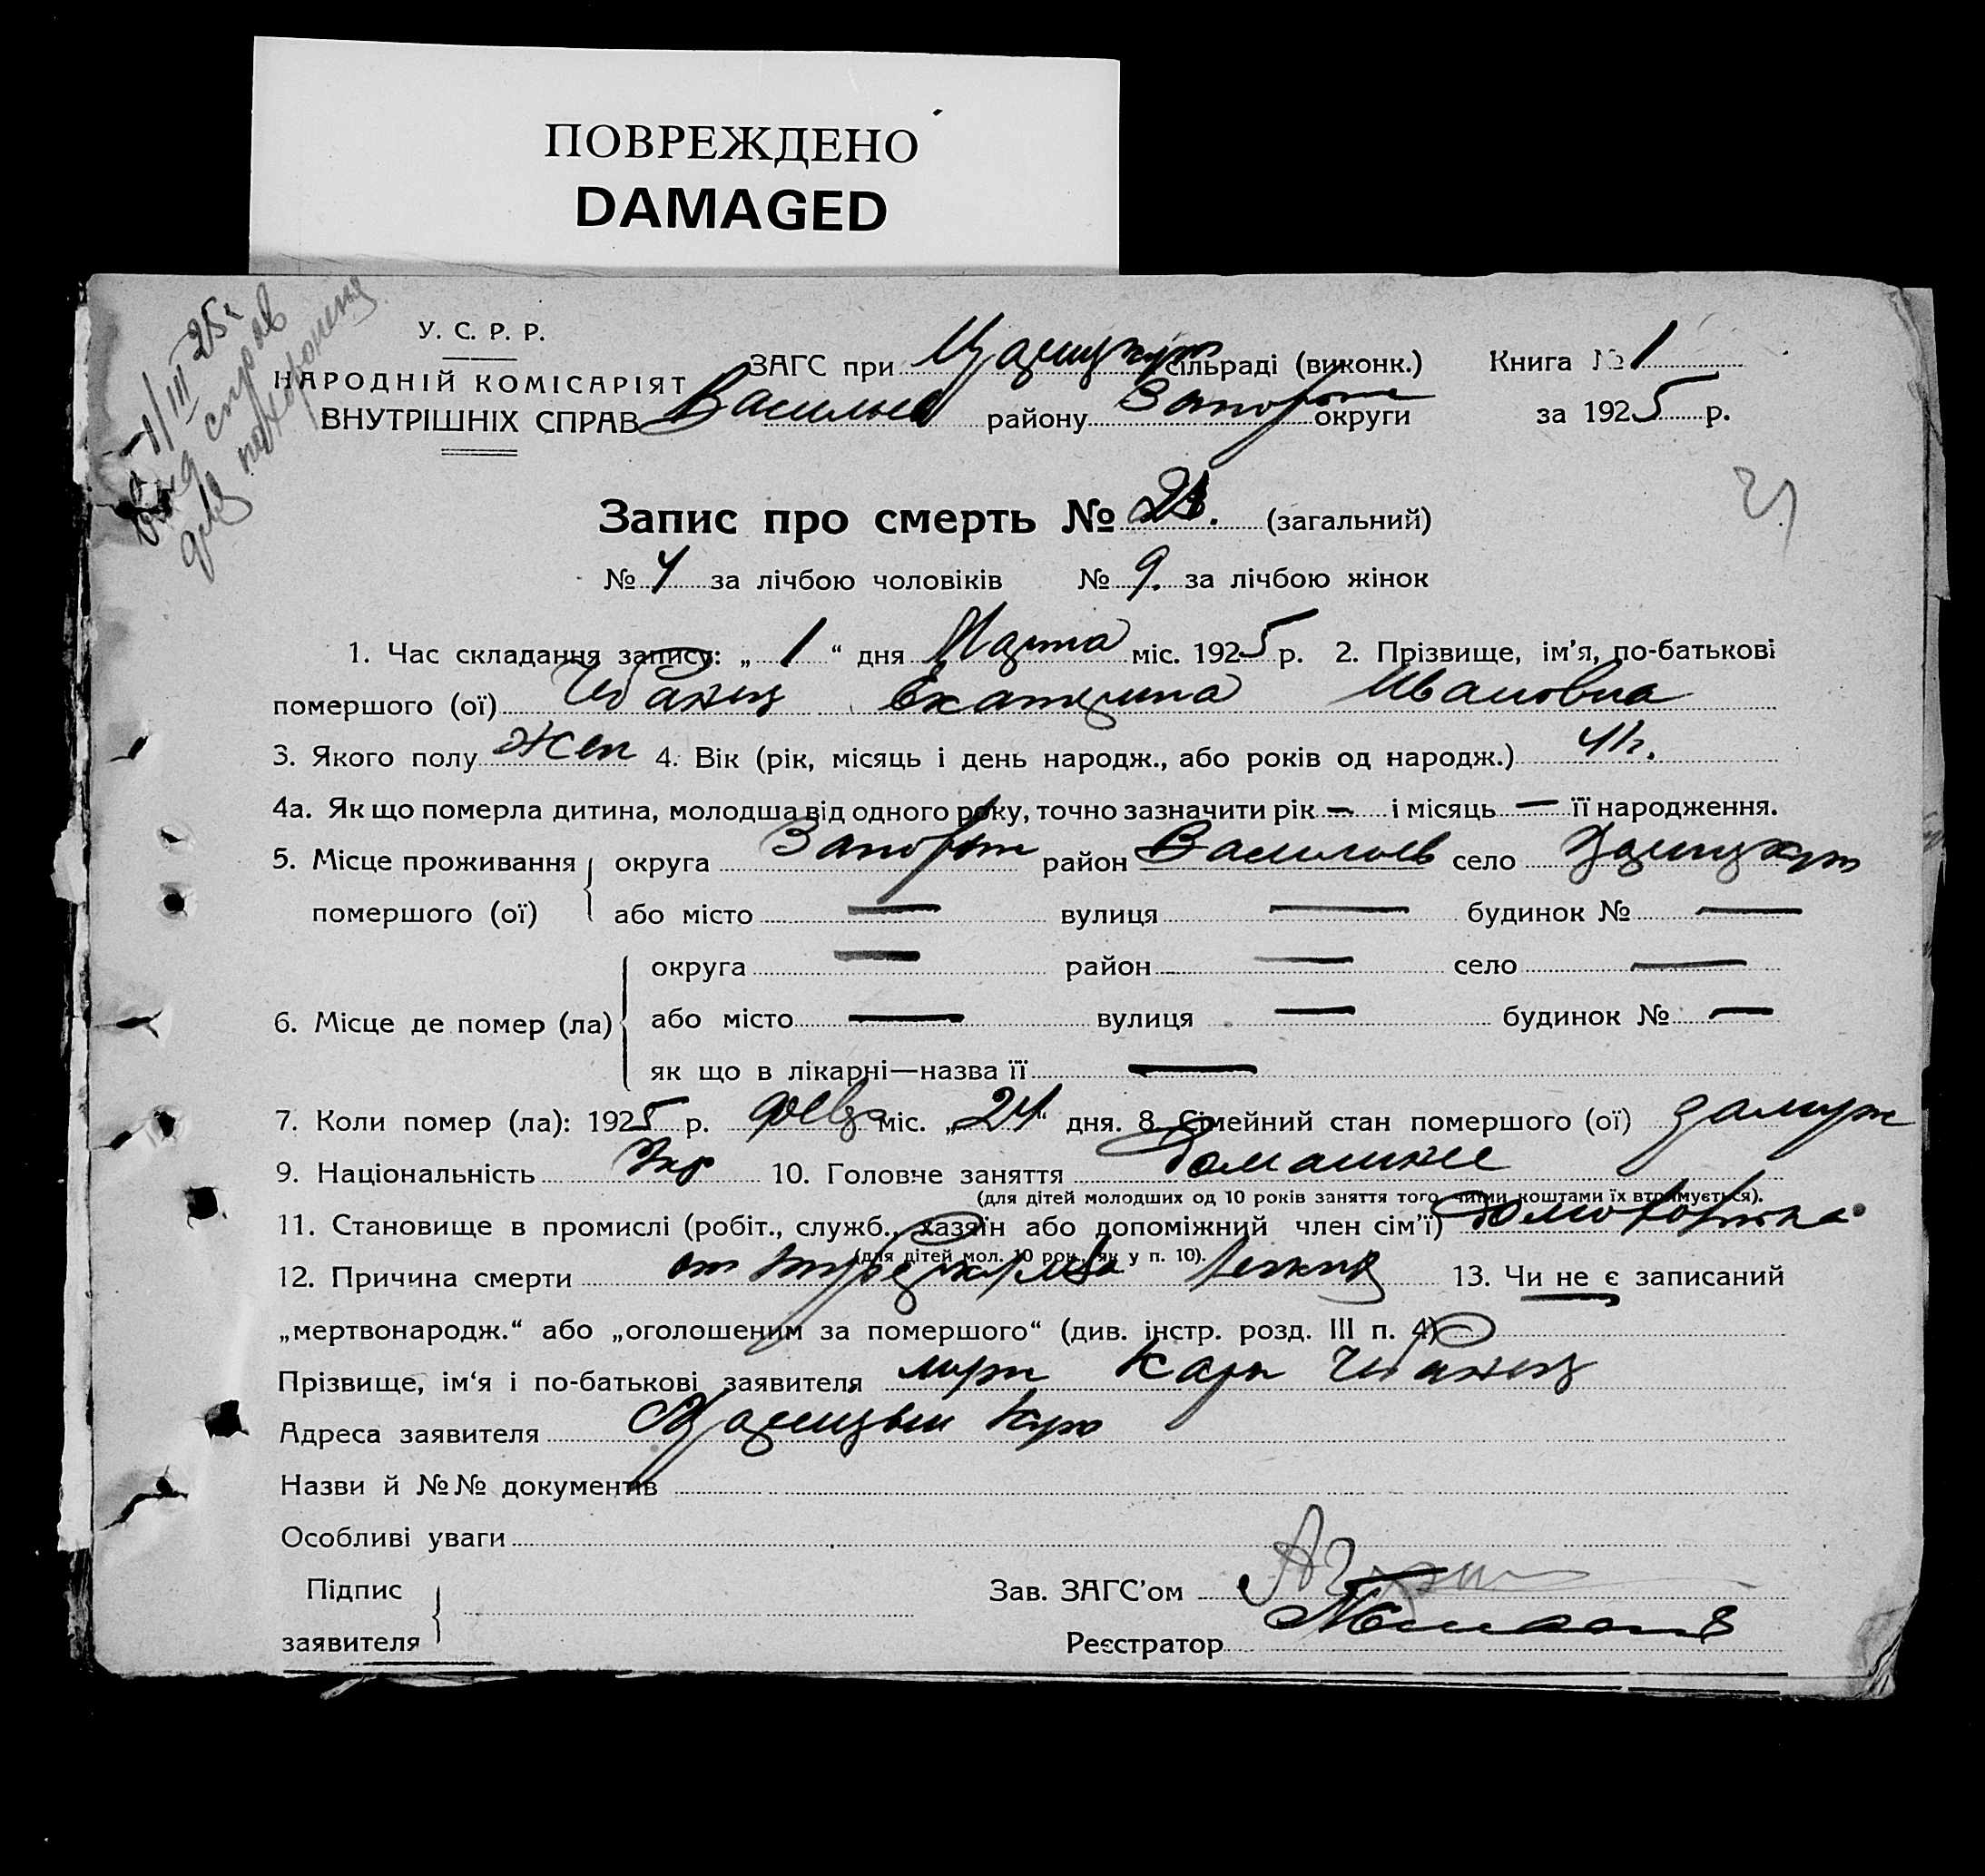 ПОВРЕЖДЕНО
DAMAGED
У. С. Р. Р.
НАРОДНІЙ КОМІСАРІЯТ
ВНУТРІШНІХ СПРАВ
ЗАГС при Царицкут сільраді (виконк.) Книга № 1
Васильев району Запорож округи за 1925 р.
1/III 25 г.
справ
для похоронення
Запис про смерть № (загальний)
№ 4 за лічбою чоловіків № 9. за лічбою жінок
1. Час складання запису: „ 1 “ дня Марта міс. 1925 р. 2. Прізвище, ім’я, по-батькові
помершого (ої) Екатерина Ивановна
3. Якого полу Жен 4. Вік (рік, місяць і день народж., або років од народж.)
4а. Як що померла дитина, молодша від одного року, точно зазначити рік — і місяць — її народження.
5. Місце проживання округа Запорож район Васильев село Царицкут
помершого (ої) або місто — вулиця — будинок № —
округа — район — село —
6. Місце де помер (ла) або місто — вулиця — будинок № —
як що в лікарні—назва її —
7. Коли помер (ла): 1925 р. февр міс. „24“ дня. 8. Сімейний стан помершого (ої) замуж
9. Національність Укр 10. Головче заняття Домашнее
(для дітей молодших од 10 років заняття того, чиїми коштами їх втримується).
11. Становище в промислі (робіт., служб., хазяїн або допоміжний член сім’ї)
(для дітей мол. 10 рок., як у п. 10).
12. Причина смерти от туберкулеза легких 13. Чи не є записаний
„мертвонародж.“ або „оголошеним за помершого“ (див. інстр. розд. III п. 4)
Прізвище, ім‘я і по-батькові заявителя муж Карп
Адреса заявителя Царицын Кут
Назви й №№ документів
Особливі уваги
Підпис
заявителя
Зав. ЗАГС’ом
Реєстратор